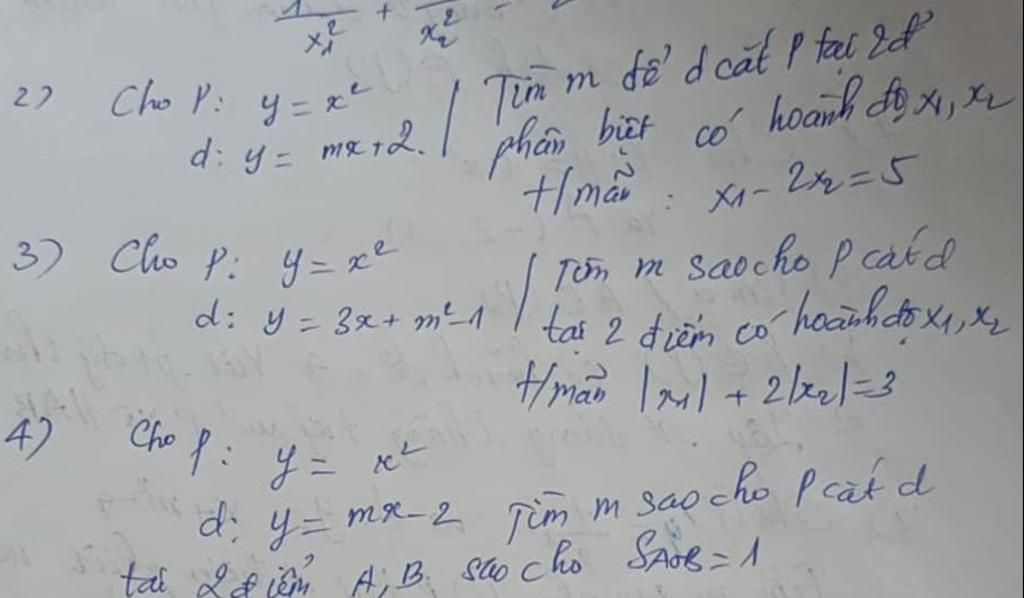 1/x₁² + /x₂²
2) Cho P: y = x² | Tìm m để d cắt P tại 2đ'
d: y = mx + 2. | phân biệt có hoành độ x₁, x₂
t/mãn : x₁ - 2x₂ = 5
3) Cho P: y = x² | Tìm m sao cho P cắt d
d: y = 3x + m² - 1 | tại 2 điểm có hoành độ x₁, x₂
t/mãn |x₁| + 2|x₂| = 3
4) Cho P: y = x²
d: y = mx - 2 Tìm m sao cho P cắt d
tại 2 điểm A, B sao cho SAOB = 1